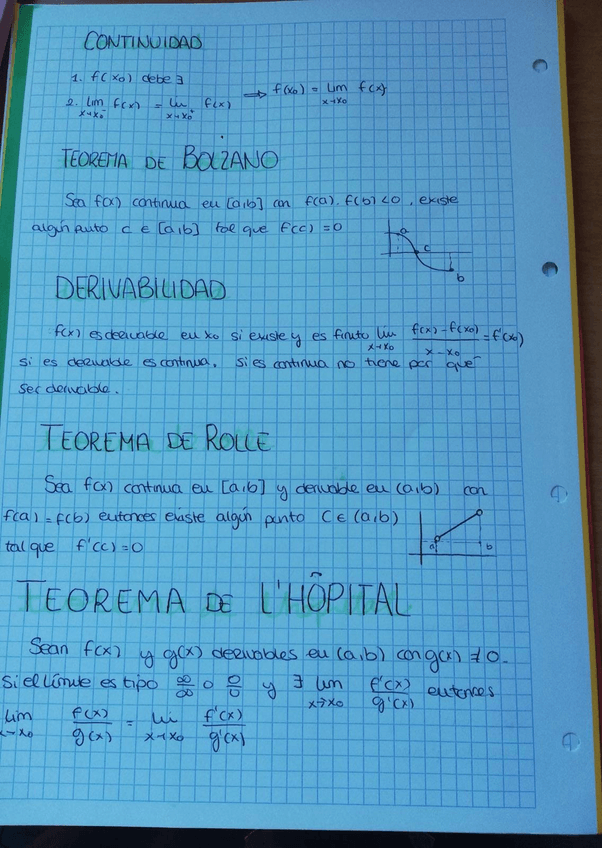 CONTINUIDAD
1. f(x₀) debe ∃
2. lim x→x₀⁻ f(x) = lim x→x₀⁺ f(x) ⟹ f(x₀) = lim x→x₀ f(x)
TEOREMA DE BOLZANO
Sea f(x) continua en [a,b] con f(a). f(b) < 0, existe
algún punto c ∈ [a,b] tal que f(c) = 0
a
c
b
DERIVABILIDAD
f(x) es derivable en x₀ si existe y es finito lim x→x₀ (f(x) - f(x₀))/(x - x₀) = f'(x₀)
si es derivable es continua. Si es continua no tiene por qué
ser derivable.
TEOREMA DE ROLLE
Sea f(x) continua en [a,b] y derivable en (a,b) con
f(a) = f(b) entonces existe algún punto C ∈ (a,b)
tal que f'(c) = 0
a b
TEOREMA DE L'HÔPITAL
Sean f(x) y g(x) derivables en (a,b) con g(x) ≠ 0.
Si el límite es tipo ∞/∞ o 0/0 y ∃ lim x→x₀ f'(x)/g'(x) entonces
lim x→x₀ f(x)/g(x) = lim x→x₀ f'(x)/g'(x)